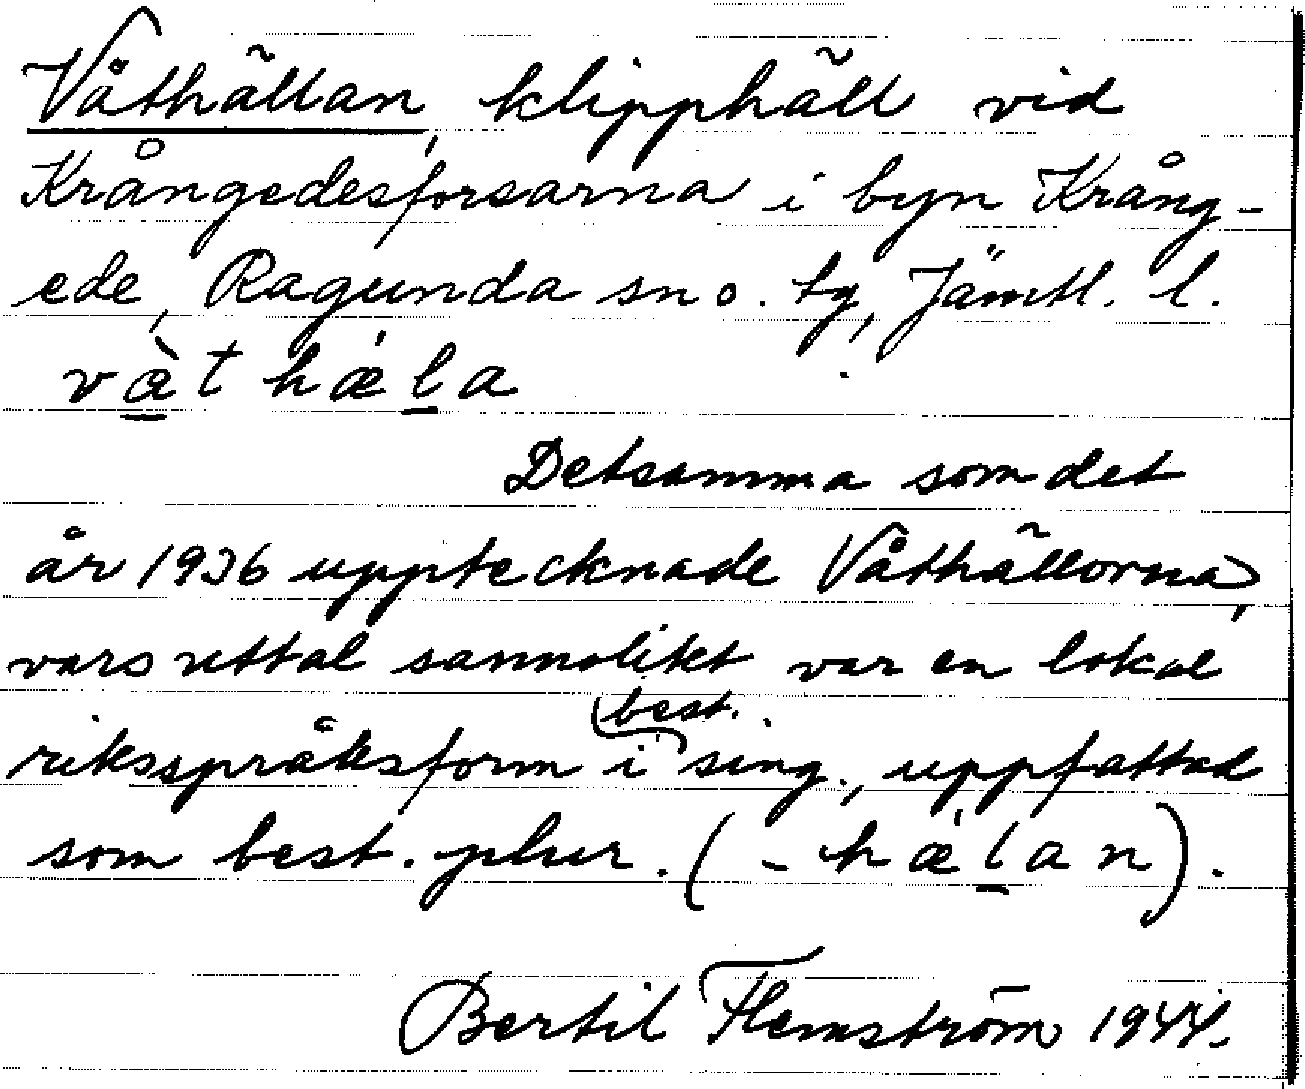 Våthällan, klipphäll vid
Krångedesforsarna i byn Krång-
ede, Ragunda sn o. tg, Jämtl. l.
væ̀t hǽla
Detsamma som det
år 1936 upptecknade Våthällorna,
vars uttal sannolikt var en lokal
best.
riksspråksform i sing., uppfattad
som best. plur. (-hǽlan).
Bertil Flemström 1944.